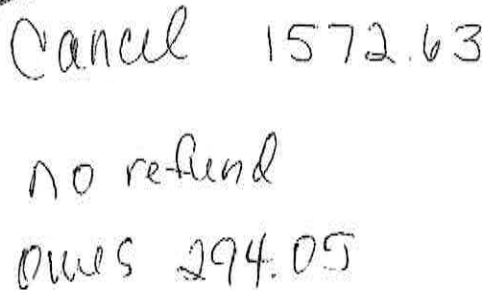 Cancel 1572.63
no refund
owes 294.05